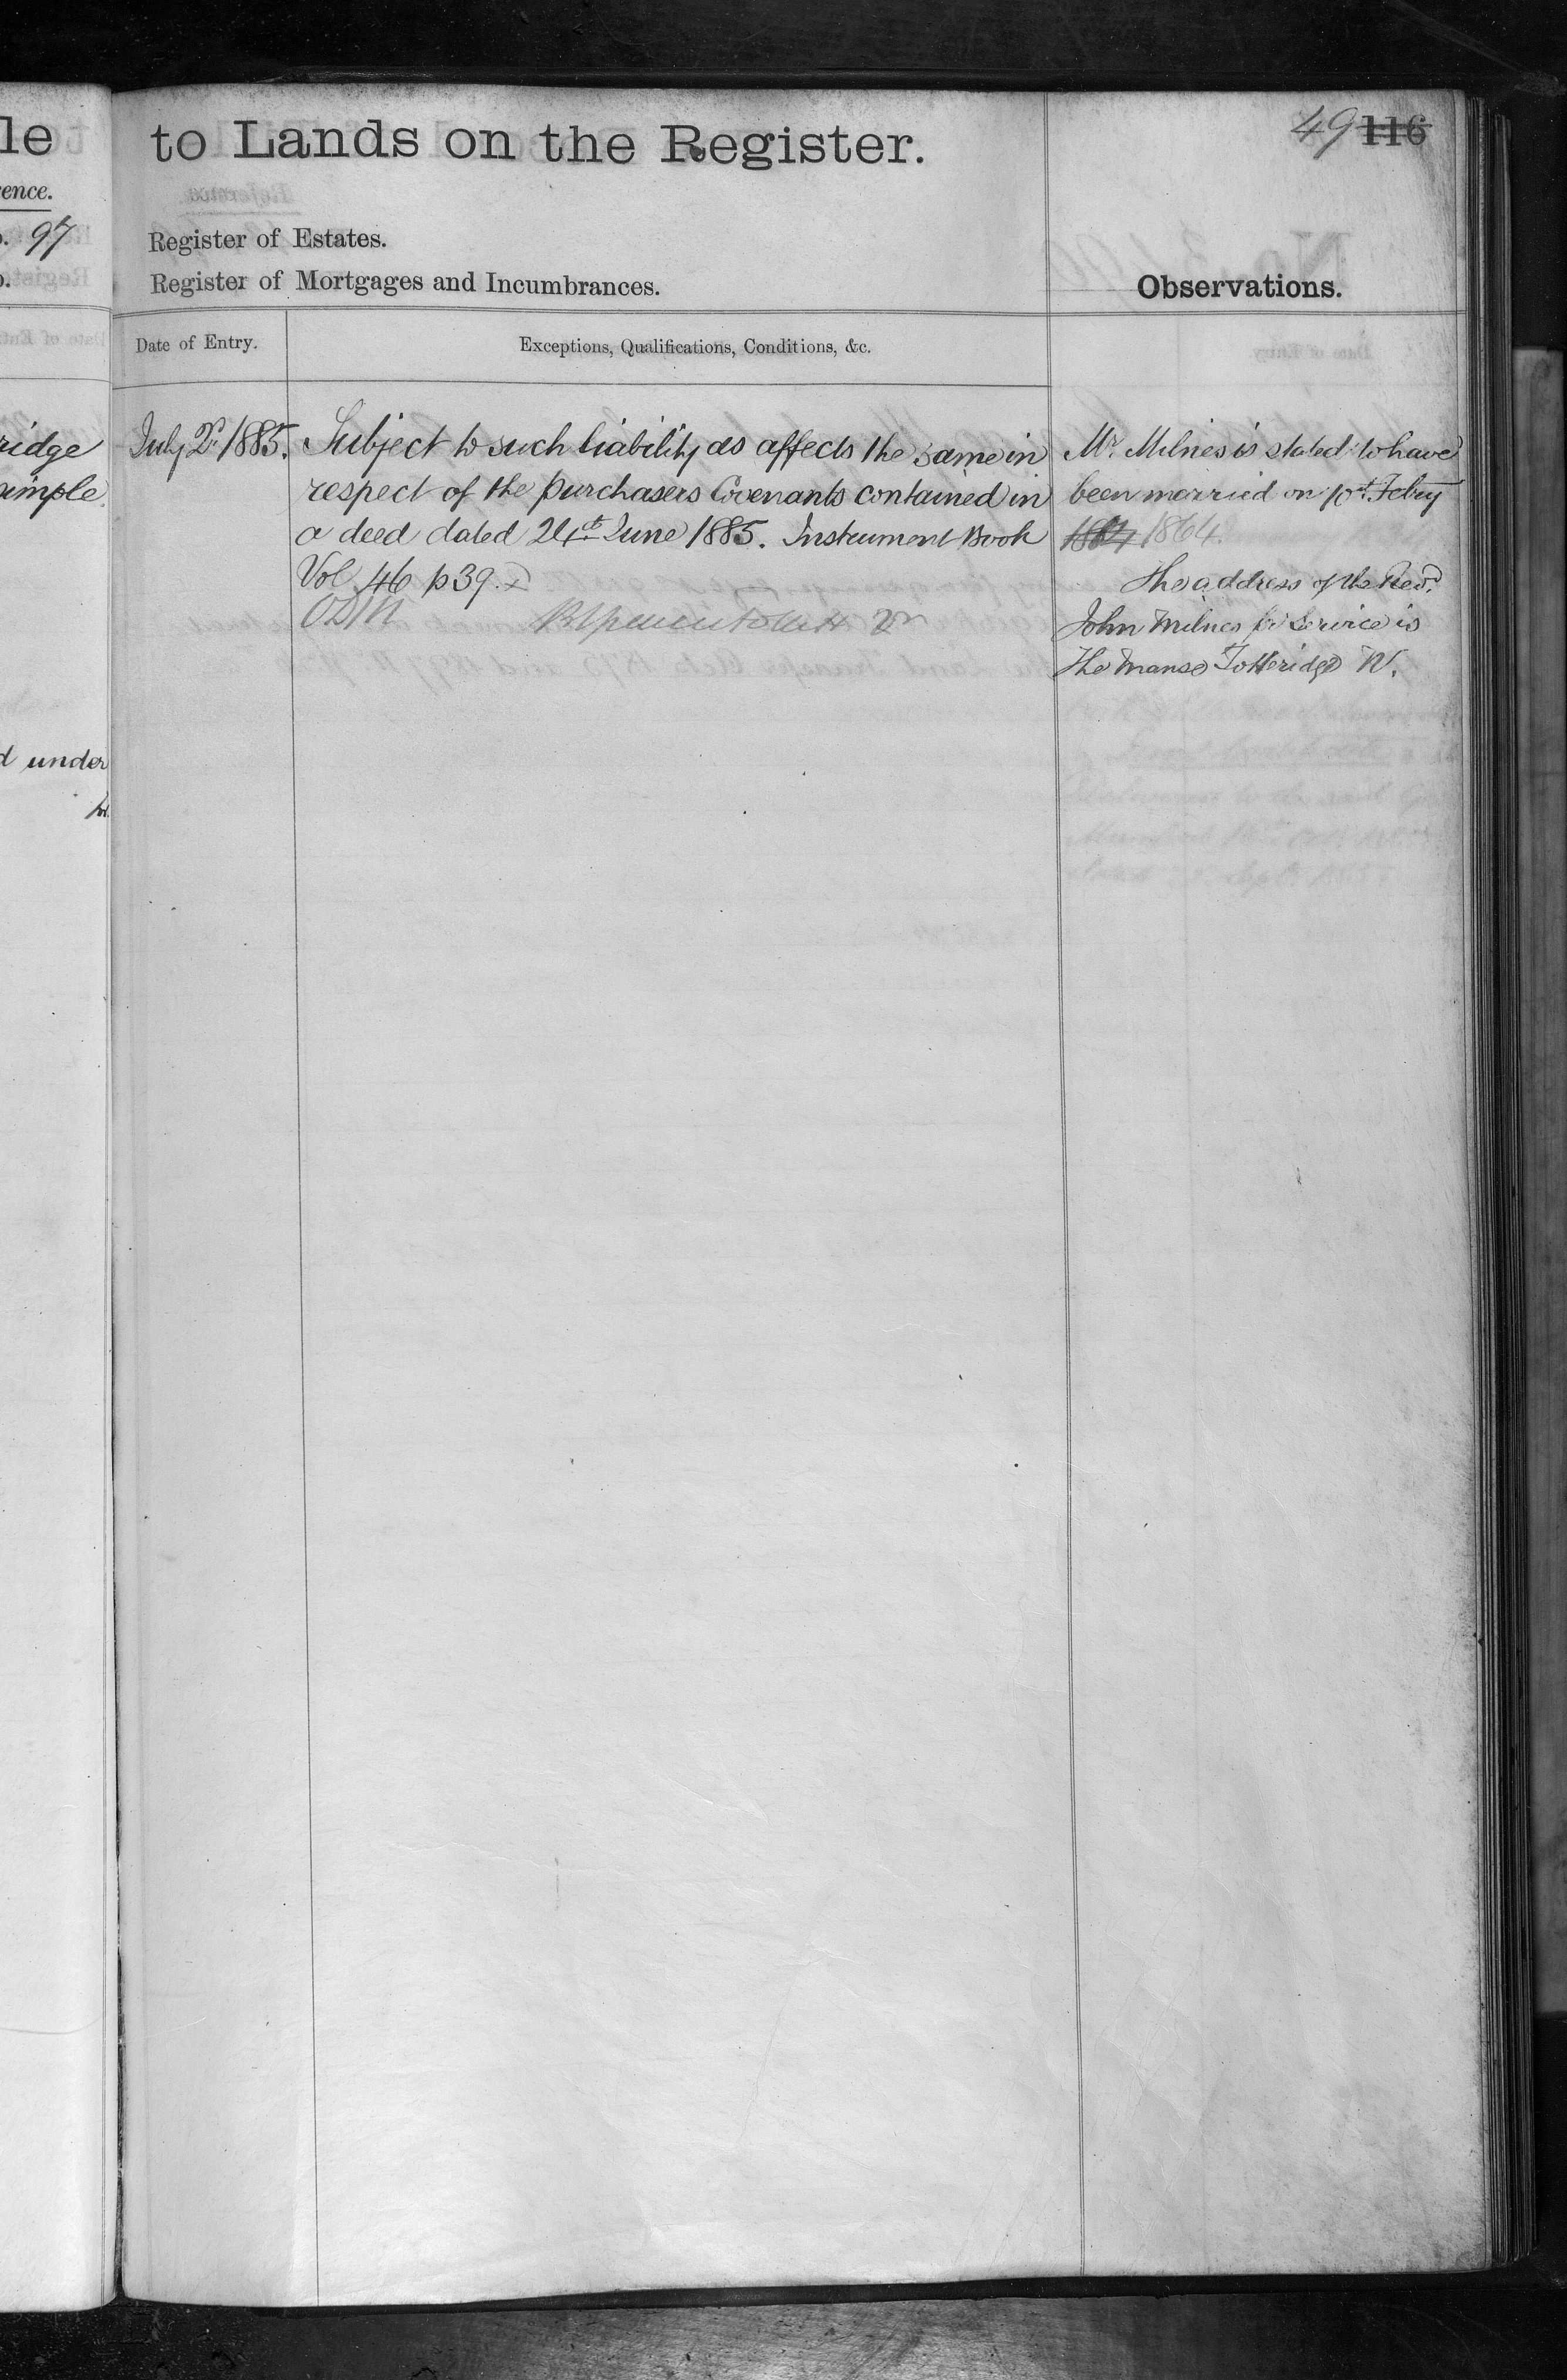 le
to Lands on the Register.
49 116
ence.
Register of Estates.
97
Register of Mortgages and Incumbrances.
Observations.
Date of Entry.
Exceptions, Qualifications, Conditions, &c.
ridge
simple
d under
July 2d 1885.
Subject to such liability as affects the same in
respect of the purchasers Covenants contained in
a deed dated June 1885. Instrument Book
Vol 46 p39.
Mr. Milnes is stated to have
been married on 10th Febry
1884 1864.
The address of the Revd.
John Milnes for Service is
The Manse Totteridge W.